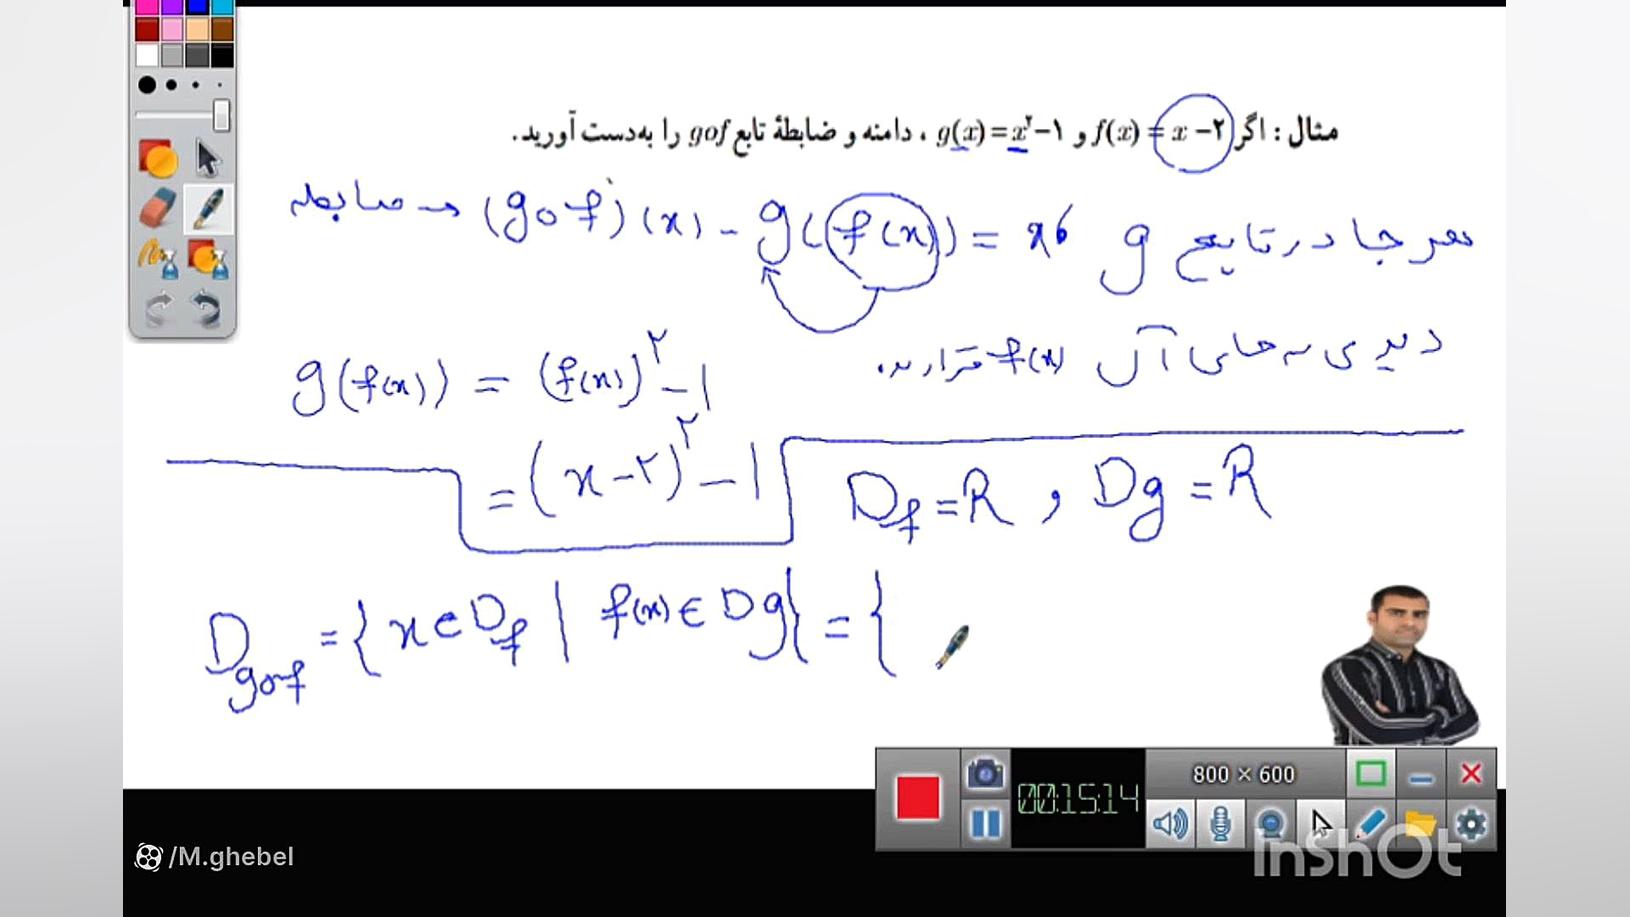 مثال : اگر f(x) = x −۲ و g(x) = x²−۱ ، دامنه و ضابطهٔ تابع gof را به‌دست آورید.
ضابطه → (gof)(x) - g(f(x)) = هر جا در تابع g
دیدی به جای آن f(x) قرار بده
g(f(x)) = (f(x))² -1
= (x-۲)² -1
D_f = R , D_g = R
D_gof = { x ∈ D_f | f(x) ∈ D_g } = {
00:15:14
800 × 600
/M.ghebel
InShOt